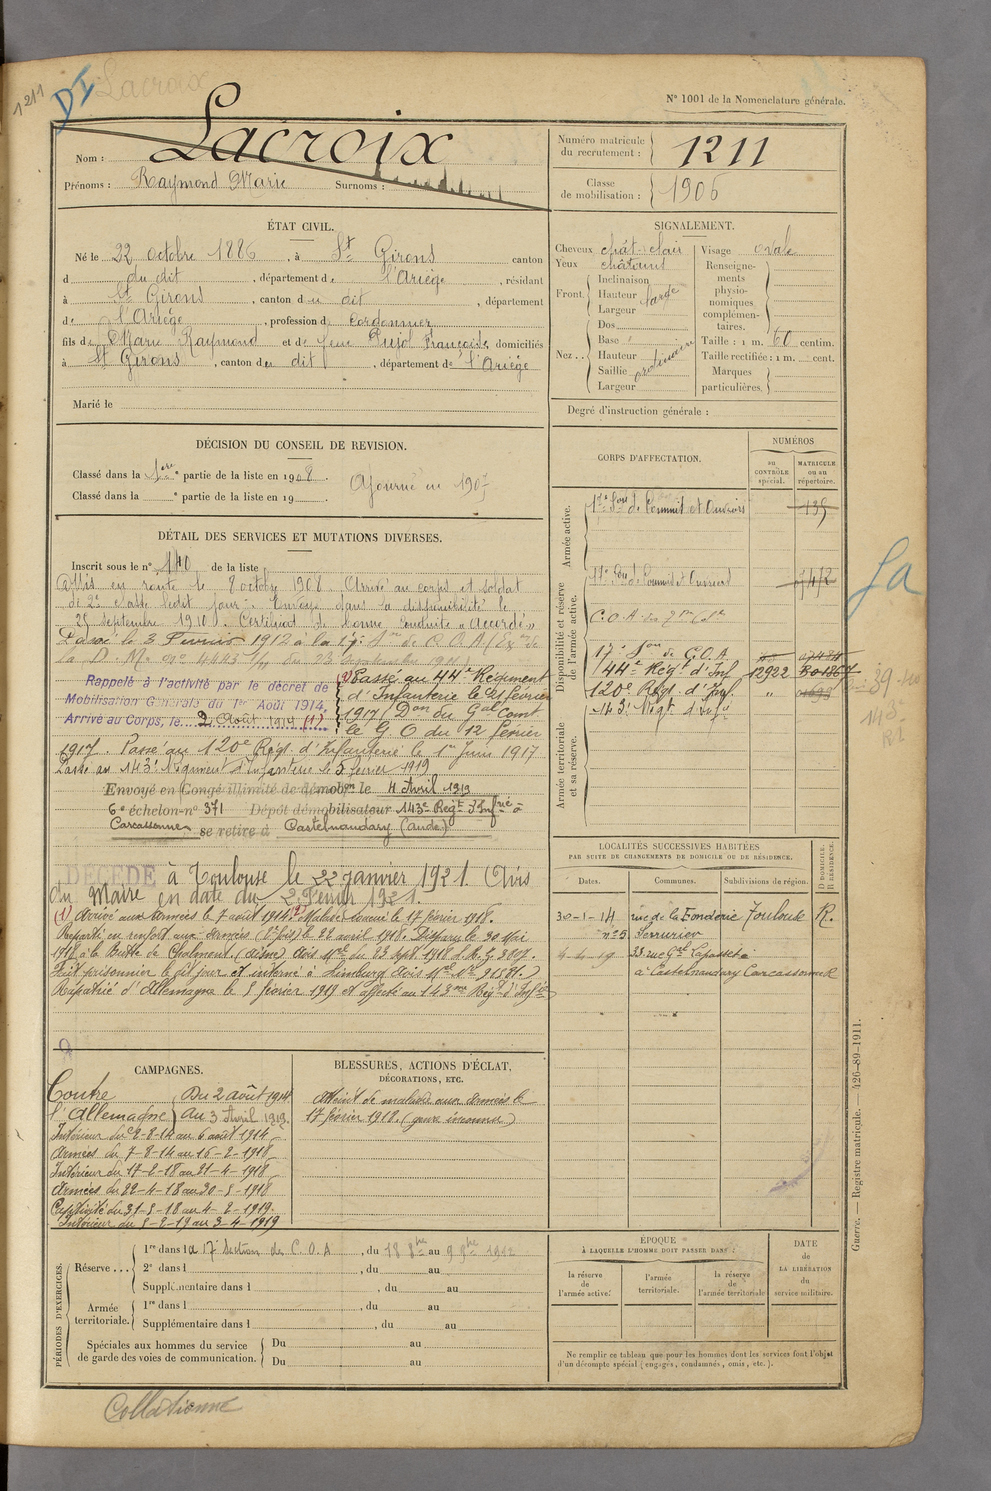 1211
DI
Lacroix
N° 1001 de la Nomenclature générale.
Nom : Lacroix
Prénoms : Raymond Marie Surnoms :
Numéro matricule du recrutement : 1211
Classe de mobilisation : 1906
ÉTAT CIVIL.
Né le 22 octobre 1886, à St Girons canton
d du dit, département de l'Ariège, résidant
à St Girons, canton du dit, département
de l'Ariège, profession de Cordonnier
fils de Marie Raymond et de feue Pujol Françoise, domiciliés
à St Girons, canton du dit, département de l'Ariège
Marié le
SIGNALEMENT.
Cheveux chât-clair Visage ovale
Yeux châtains Renseignements physionomiques complémentaires.
Front. Inclinaison
Hauteur large
Largeur
Nez.. Dos
Base
Hauteur ordinaire
Saillie
Largeur
Taille : 1 m. 60 centim.
Taille rectifiée : 1 m. cent.
Marques particulières.
Degré d'instruction générale :
DÉCISION DU CONSEIL DE REVISION.
Classé dans la 1ère partie de la liste en 1908.
Classé dans la ° partie de la liste en 19
Ajourné en 1907
DÉTAIL DES SERVICES ET MUTATIONS DIVERSES.
Inscrit sous le n° 140 de la liste
Mis en route le 8 octobre 1908. Arrivé au corps et soldat
de 2e classe ledit jour. Envoyé dans la disponibilité le
25 septembre 1910. Certificat de bonne conduite « Accordé »
Passé le 3 Février 1912 à la 17e Son de C.O.A (Ex de
la D. M. n° 4423 1/11 du 23 Septembre 1911)
Rappelé à l'activité par le décret de
Mobilisation Générale du 1er Août 1914.
Arrivé au Corps, le 2 Août 1914 (1)
Passé au 44e Régiment
d'Infanterie le 21 février
1917 (Don du Gal Comt
le G. O du 12 février
1917. Passé au 120e Régt d'Infanterie le 1er Juin 1917
Passé au 143e Régiment d'Infanterie le 5 février 1919
Envoyé en Congé illimité de démobon le 4 Avril 1919
6e échelon-n° 371 Dépôt démobilisateur 143e Regt d'Infrie à
Carcassonne se retire à Castelnaudary (Aude)
DÉCÉDÉ à Toulouse le 22 janvier 1921. (Avis
du Maire en date du 2 Février 1921.
(1) Arrivé aux armées le 7 août 1914. (2) Malade évacué le 17 février 1918.
Reparti en renfort aux armées (2e fois) le 22 avril 1918. Disparu le 30 Mai
1918 à la Butte de Chalmont (Aisne) avis Mel du 23 Sept. 1918 d. R. G 3007.
Fait prisonnier le dit jour et interné à Limburg (avis Mel N° 91581.)
Rapatrié d'Allemagne le 5 février 1919 et affecté au 143me Régt d'Infie
CORPS D'AFFECTATION.
NUMÉROS
au CONTRÔLE spécial.
MATRICULE ou au répertoire.
Armée active.
17e Son de Commis et Ouvriers 135
Disponibilité et réserve de l'armée active.
17e Son de Commis et Ouvriers
17e Son de C.O.A
144e Régt d'Inf 12922
120e Régt d'Inf. "
143e Régt d'Infie
Armée territoriale et sa réserve.
143e
R.I.
LOCALITÉS SUCCESSIVES HABITÉES
PAR SUITE DE CHANGEMENTS DE DOMICILE OU DE RÉSIDENCE.
Dates. Communes. Subdivisions de région. D DOMICILE. R RÉSIDENCE.
30-1-14 rue de la Fonderie Toulouse R.
n° 5 Serrurier
4-4-19 33 rue Gal Lapasset
à Castelnaudary Carcassonne R
CAMPAGNES.
Contre l'Allemagne
Du 2 août 1914
Au 3 Avril 1919.
Intérieur du 2-8-14 au 6 août 1914
Armées du 7-8-14 au 16-2-1918
Intérieur du 17-2-18 au 21-4-1918
Armées du 22-4-18 au 30-5-1918
Captivité du 31-5-18 au 4-2-1919.
Intérieur du 5-2-19 au 3-4-1919
BLESSURES, ACTIONS D'ÉCLAT,
DÉCORATIONS, ETC.
Atteint de maladie aux armées le
17 février 1918. (genre inconnu)
PÉRIODES D'EXERCICES.
Réserve... 1re dans la 17e Section de C.O.A, du 18 8bre au 9 9bre 1912
2e dans l , du au
Supplémentaire dans l , du au
Armée territoriale. 1re dans l , du au
Supplémentaire dans l , du au
Spéciales aux hommes du service de garde des voies de communication. Du au
Du au
ÉPOQUE
À LAQUELLE L'HOMME DOIT PASSER DANS :
la réserve de l'armée active.
l'armée territoriale.
la réserve de l'armée territoriale
DATE DE LA LIBÉRATION du service militaire.
Ne remplir ce tableau que pour les hommes dont les services font l'objet
d'un décompte spécial (engagés, condamnés, omis, etc.).
Guerre. — Registre matricule. — 426-89-1911.
Collationné